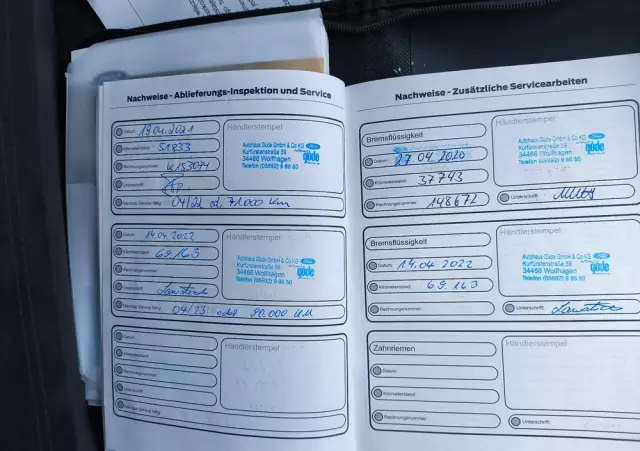 Nachweise - Ablieferungs-Inspektion und Service
Datum 19.04.2021
Kilometerstand 51833
Rechnungsnummer
Unterschrift
Nächster Service fällig 04/22 od. 71.000 km
Händlerstempel
Autohaus Güde GmbH & Co KG
Kurfürstenstraße 59
34466 Wolfhagen
Telefon (05692) 9 86 50
Ford
güde
Datum 14.04.2022
Kilometerstand 69.163
Rechnungsnummer
Unterschrift
Nächster Service fällig 04/23 oder 90.000 km
Händlerstempel
Autohaus Güde GmbH & Co KG
Kurfürstenstraße 59
34466 Wolfhagen
Telefon (05692) 9 86 50
Ford
güde
Datum
Kilometerstand
Rechnungsnummer
Unterschrift
Nächster Service fällig
Händlerstempel
Nachweise - Zusätzliche Servicearbeiten
Bremsflüssigkeit
Datum 27.04.2020
Kilometerstand 37743
Rechnungsnummer 148672
Händlerstempel
Autohaus Güde GmbH & Co KG
Kurfürstenstraße 59
34466 Wolfhagen
Telefon (05692) 9 86 50
Ford
güde
Unterschrift
Bremsflüssigkeit
Datum 14.04.2022
Kilometerstand 69.163
Rechnungsnummer
Händlerstempel
Autohaus Güde GmbH & Co KG
Kurfürstenstraße 59
34466 Wolfhagen
Telefon (05692) 9 86 50
Ford
güde
Unterschrift
Zahnriemen
Datum
Kilometerstand
Rechnungsnummer
Händlerstempel
Unterschrift